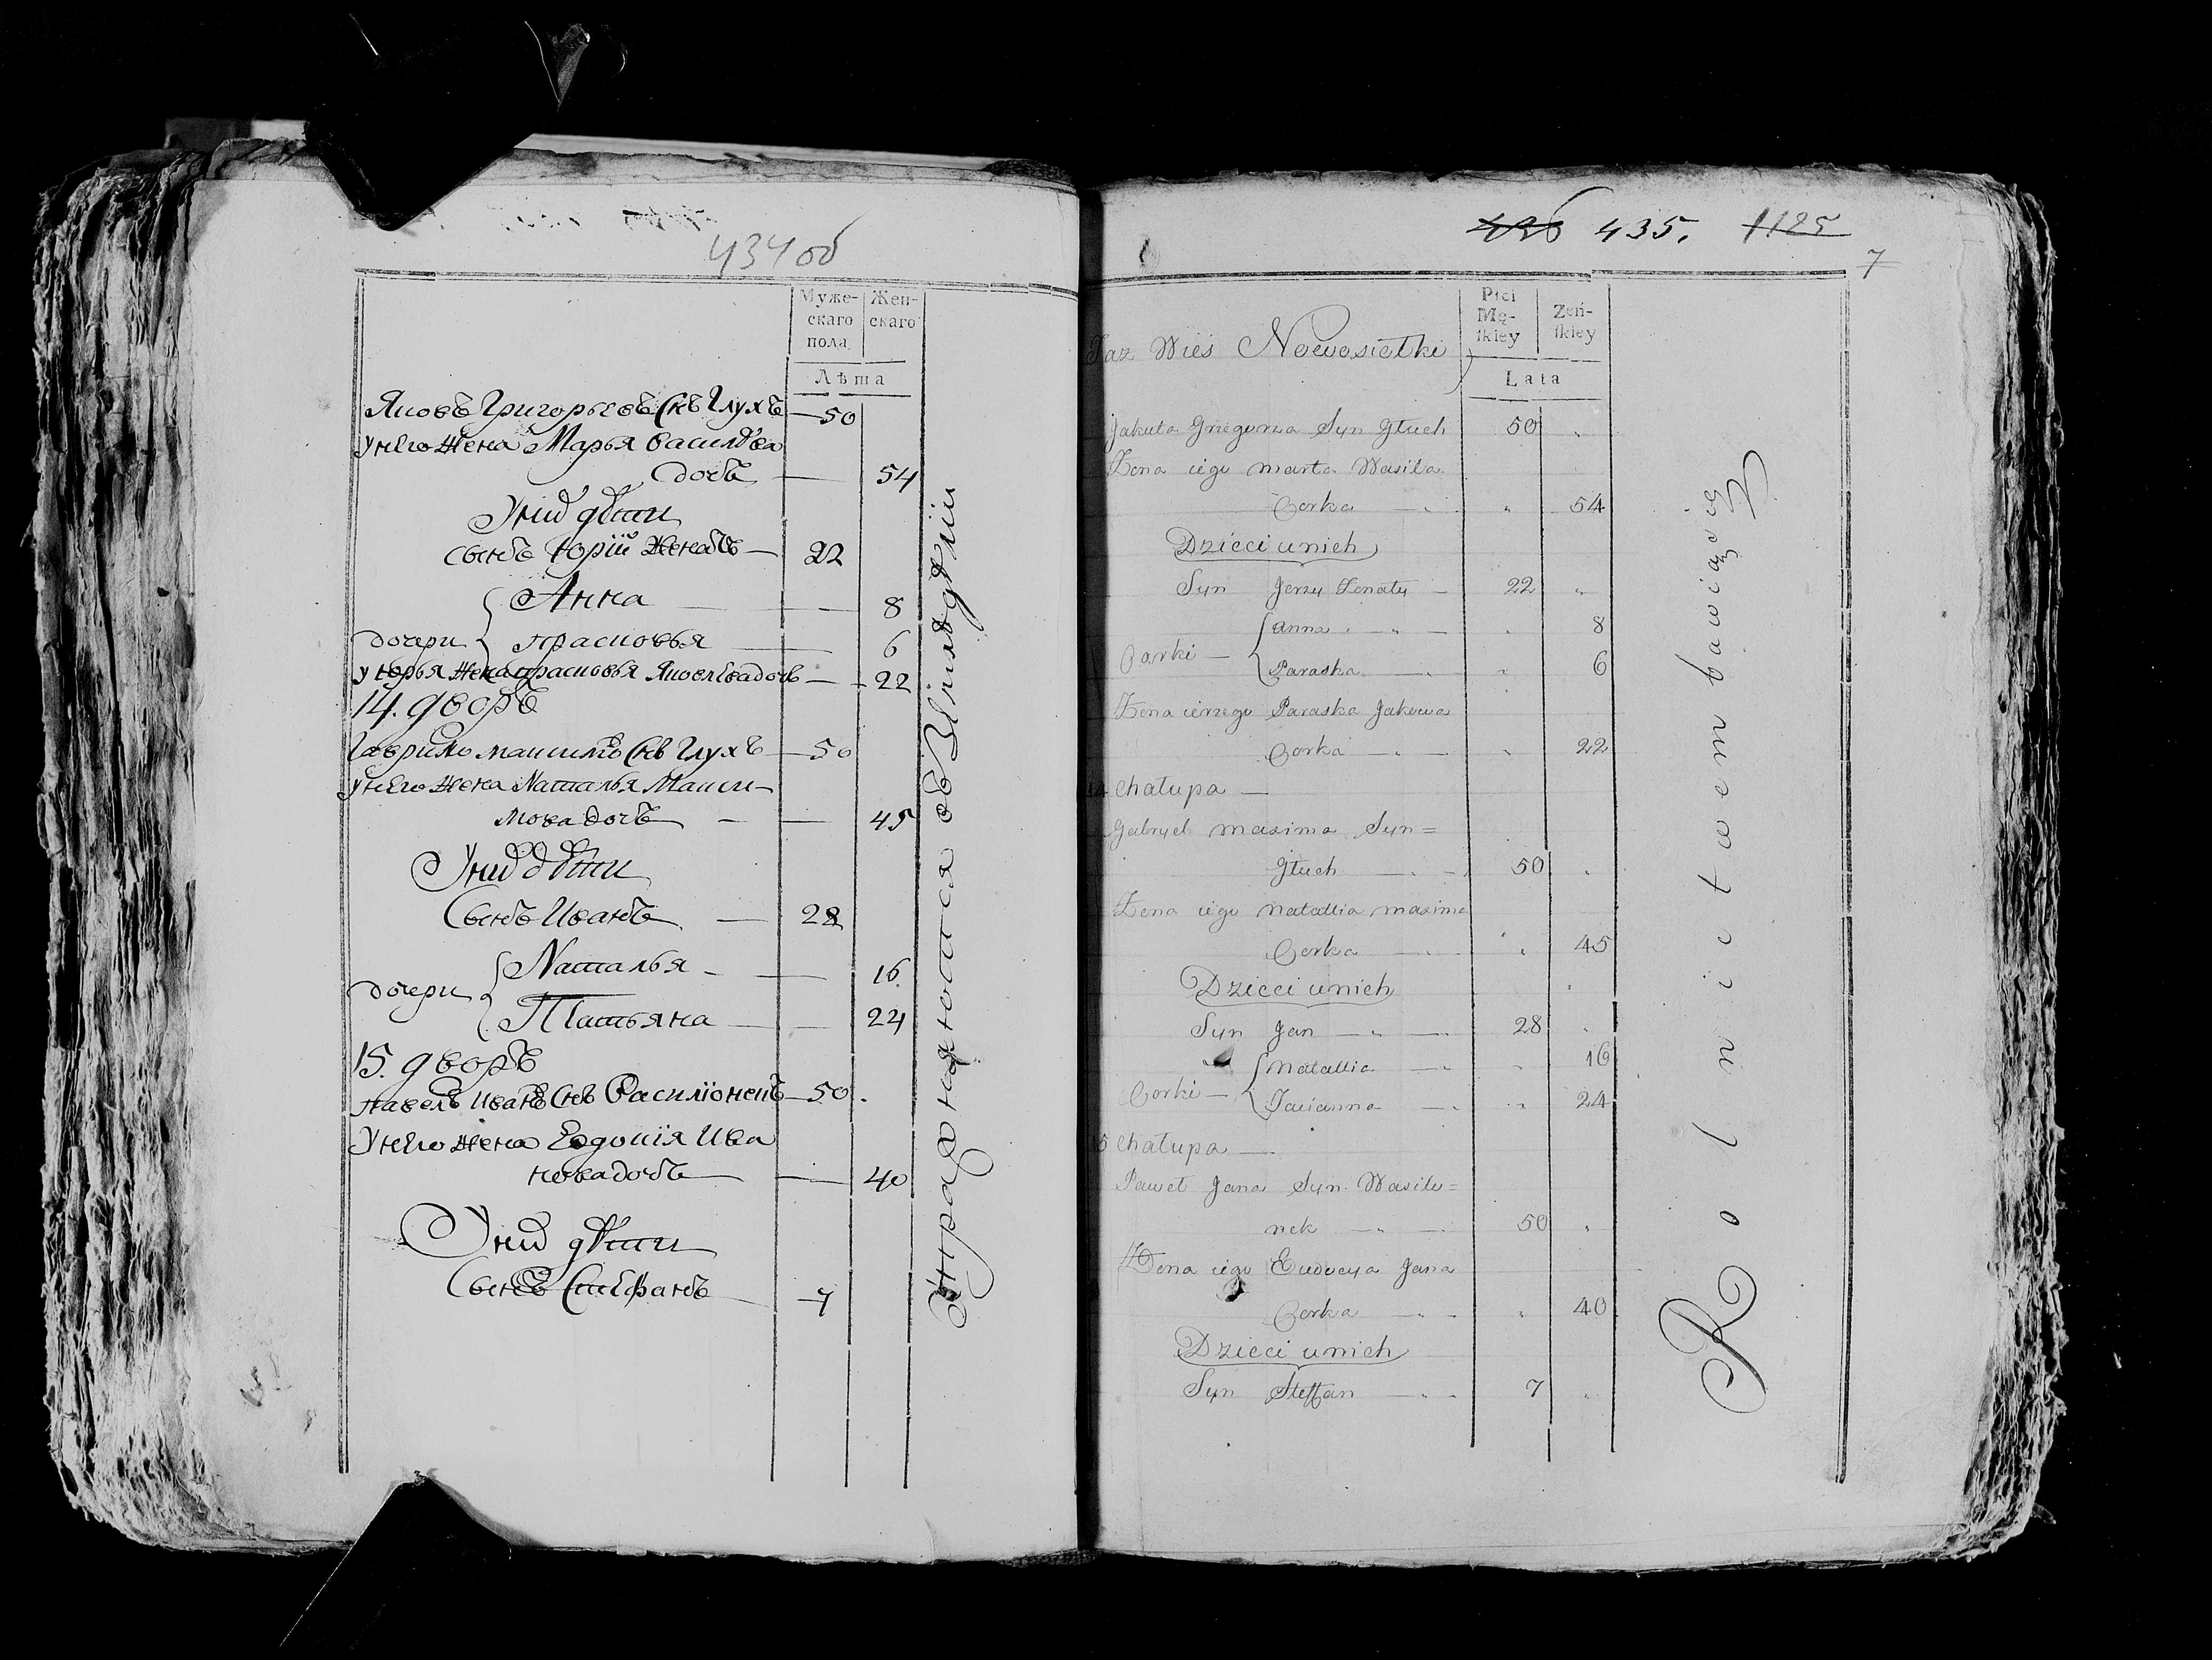 434 об
Муже-
скаго
пола
Жен-
скаго
Лѣта
Яковъ Григорьевъ Снъ Глухъ — 50
У него жена Марья Василѣва
дочь — 54
У нихъ дѣти
сынъ Юрій женатъ — 22
Анна — 8
дочери { Прасковья — 6
У Юрья жена Прасковья Яковлева дочь — 22
14. дворъ
Гаврило Максимъ Снъ Глухъ — 50
У него жена Наталья Макси-
мова дочь — 45
У нихъ дѣти
Сынъ Иванъ — 28
Наталья — 16
дочери {
Татьяна — 24
15. дворъ
Павелъ Иванъ Снъ Василіонекъ — 50.
У него жена Евдокія Ива
нова дочь — 40
У нихъ дѣти
Сынъ Стефанъ — 7
436 435. 1125
7
Płci
Mę-
skiey
Żeń-
skiey
Wieś Nowosiołki
Lata
Jakuta Grzegorza Syn Głuch 50 "
Żona iego Marta Wasila
Corka — " 54
Dzieci u nich
Syn Jerzy Żonaty — 22 "
Anna — " 8
Corki — { Paraska — " 6
Żona ierzego Paraska Jakowa
Corka — " 22
14 Chałupa —
Gabryel Maxima Syn =
Głuch — 50 "
Żona iego Natallia Maxima
Corka — " 45
Dzieci u nich
Syn Jan — 28 "
Natallia — " 16
Corki — { Tacianna — " 24
15 Chałupa —
Paweł Jana Syn Wasilo =
nek — 50 "
Żona iego Eudocya Jana
Corka — " 40
Dzieci u nich
Syn Steffan — 7 "
Rolnictwem bawią się